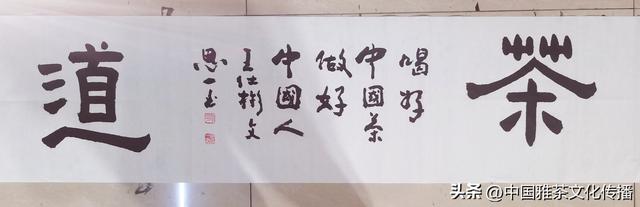 茶
喝好
中國茶
做好
中國人
王仕彬文
道
头条 @中国雅茶文化传播